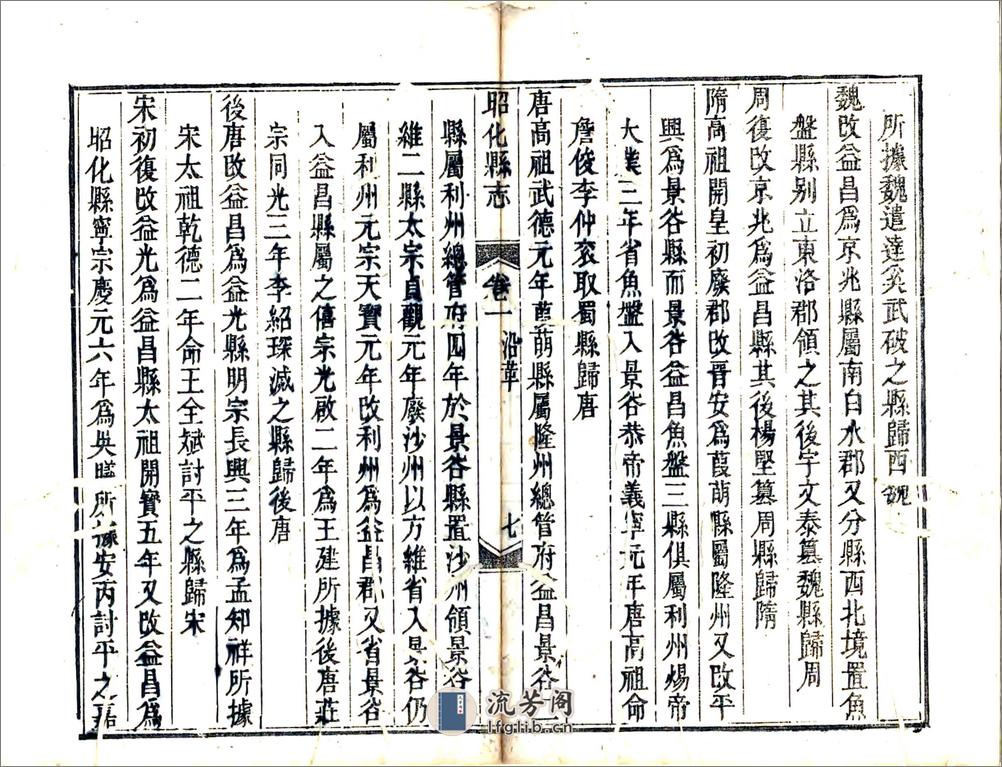 所據魏遣達奚武破之縣歸西魏
魏改益昌爲京兆縣屬南白水郡又分縣西北境置魚
盤縣別立東洛郡領之其後宇文泰篡魏縣歸周
周復改京兆爲益昌縣其後楊堅篡周縣歸隋
隋高祖開皇初廢郡改晉安爲葭萌縣屬隆州又改平
興爲景谷縣而景谷益昌魚盤三縣俱屬利州煬帝
大業三年省魚盤入景谷恭帝義寧元年唐高祖命
詹俊李仲袞取蜀縣歸唐
唐高祖武德元年葭萌縣屬隆州總管府益昌景谷二
昭化縣志 卷一 沿革 七
縣屬利州總管府四年於景谷縣置沙州領景谷
維二縣太宗貞觀元年廢沙州以方維省入景谷仍
屬利州元宗天寶元年改利州爲益昌郡又省景谷
入益昌縣屬之僖宗光啟二年爲王建所據後唐莊
宗同光三年李紹琛滅之縣歸後唐
後唐改益昌爲益光縣明宗長興三年爲孟知祥所據
宋太祖乾德二年命王全斌討平之縣歸宋
宋初復改益光爲益昌縣太祖開寶五年又改益昌爲
昭化縣寧宗慶元六年爲吳曦所據安丙討平之嘉
流芳閣
lfglib.cn